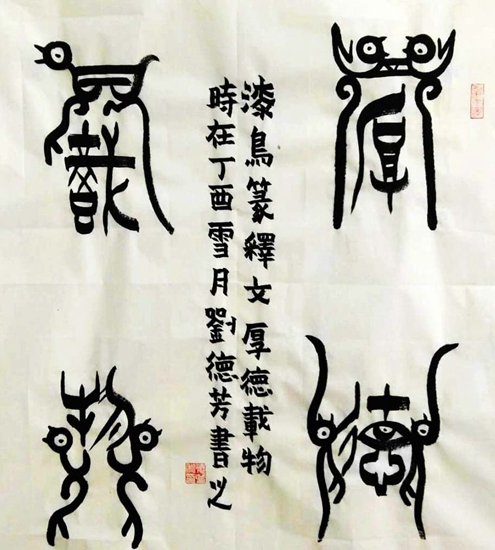 厚
德
漆鳥篆釋文厚德載物
時在丁酉雪月劉德芳書之
載
物